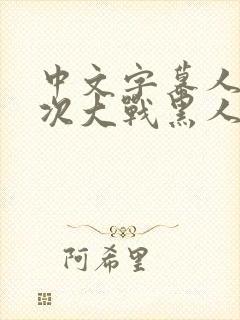 中文字幕人
次大战黑人
阿希里